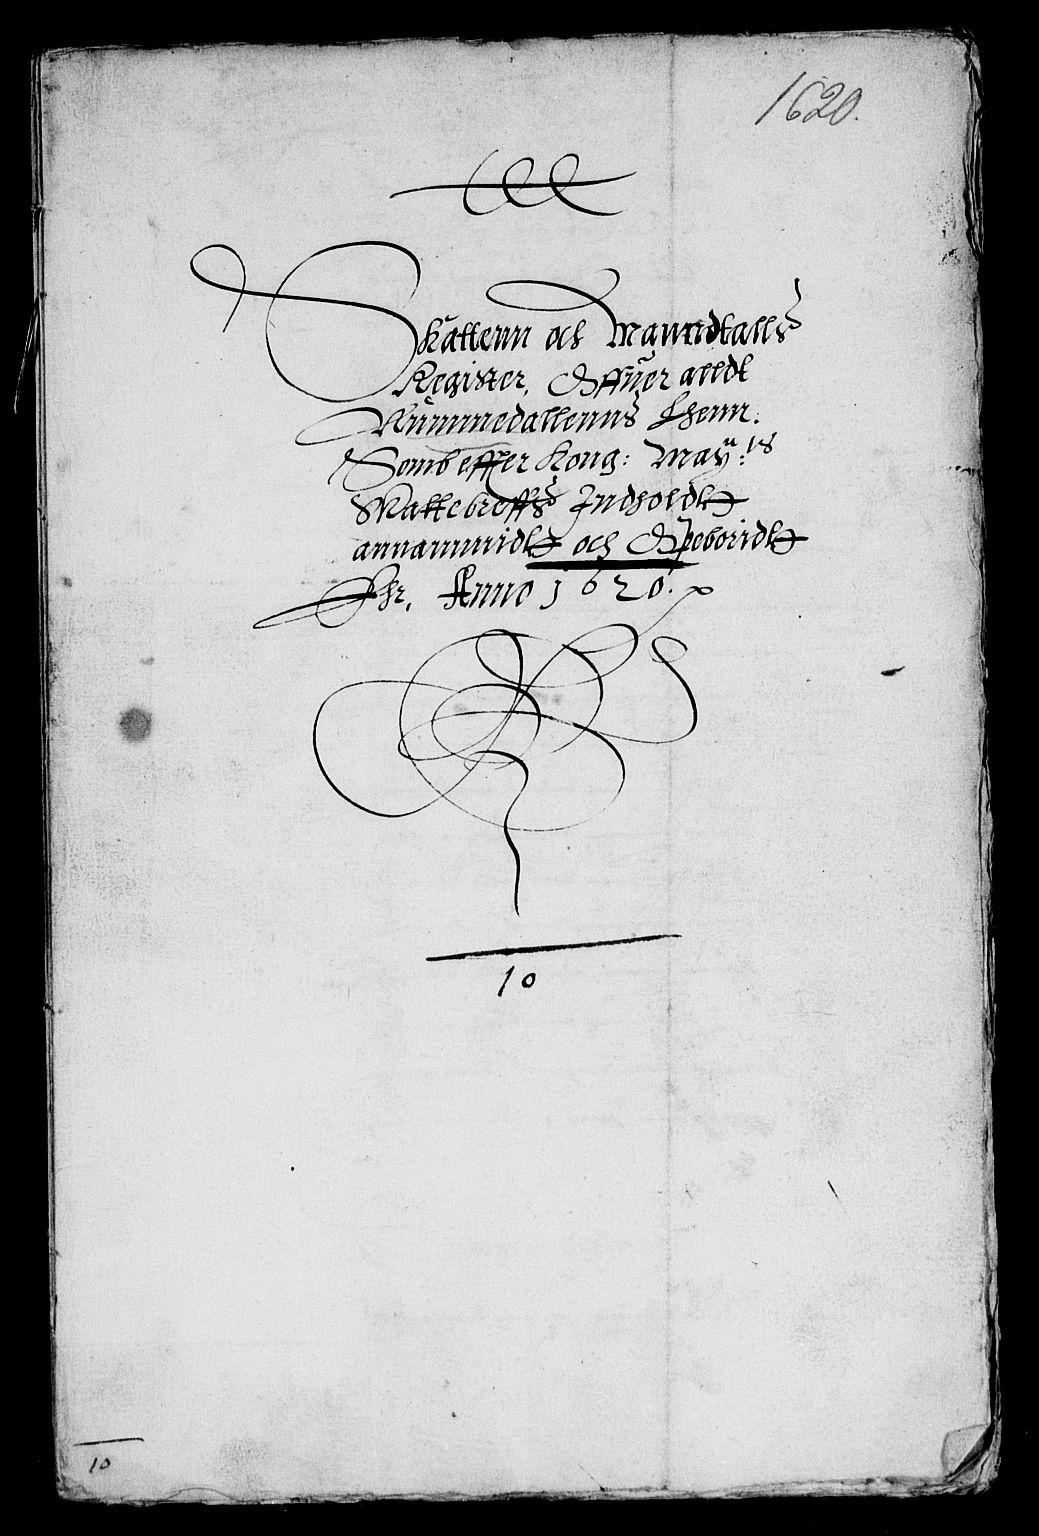 1620.
Skattenn och Manndtalls
Register, Offuer alldt
Nummedallenns Lhenn.
Somb effter Kong: May:ts
Skattebreffs Indholdt
annammidt och Opeboridt
Ehr, Anno 1620.
10
10